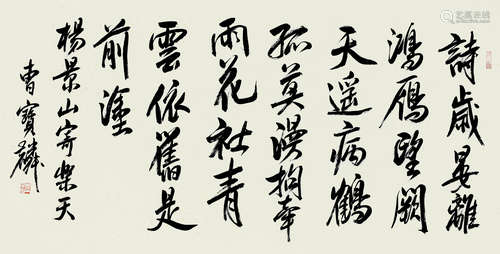 詩歲晏離
鴻雁望闕
天遥病鶴
孤莫漫拘牽
雨花社青
雲依舊是
前塗
楊景山寄樂天
曹寶麟